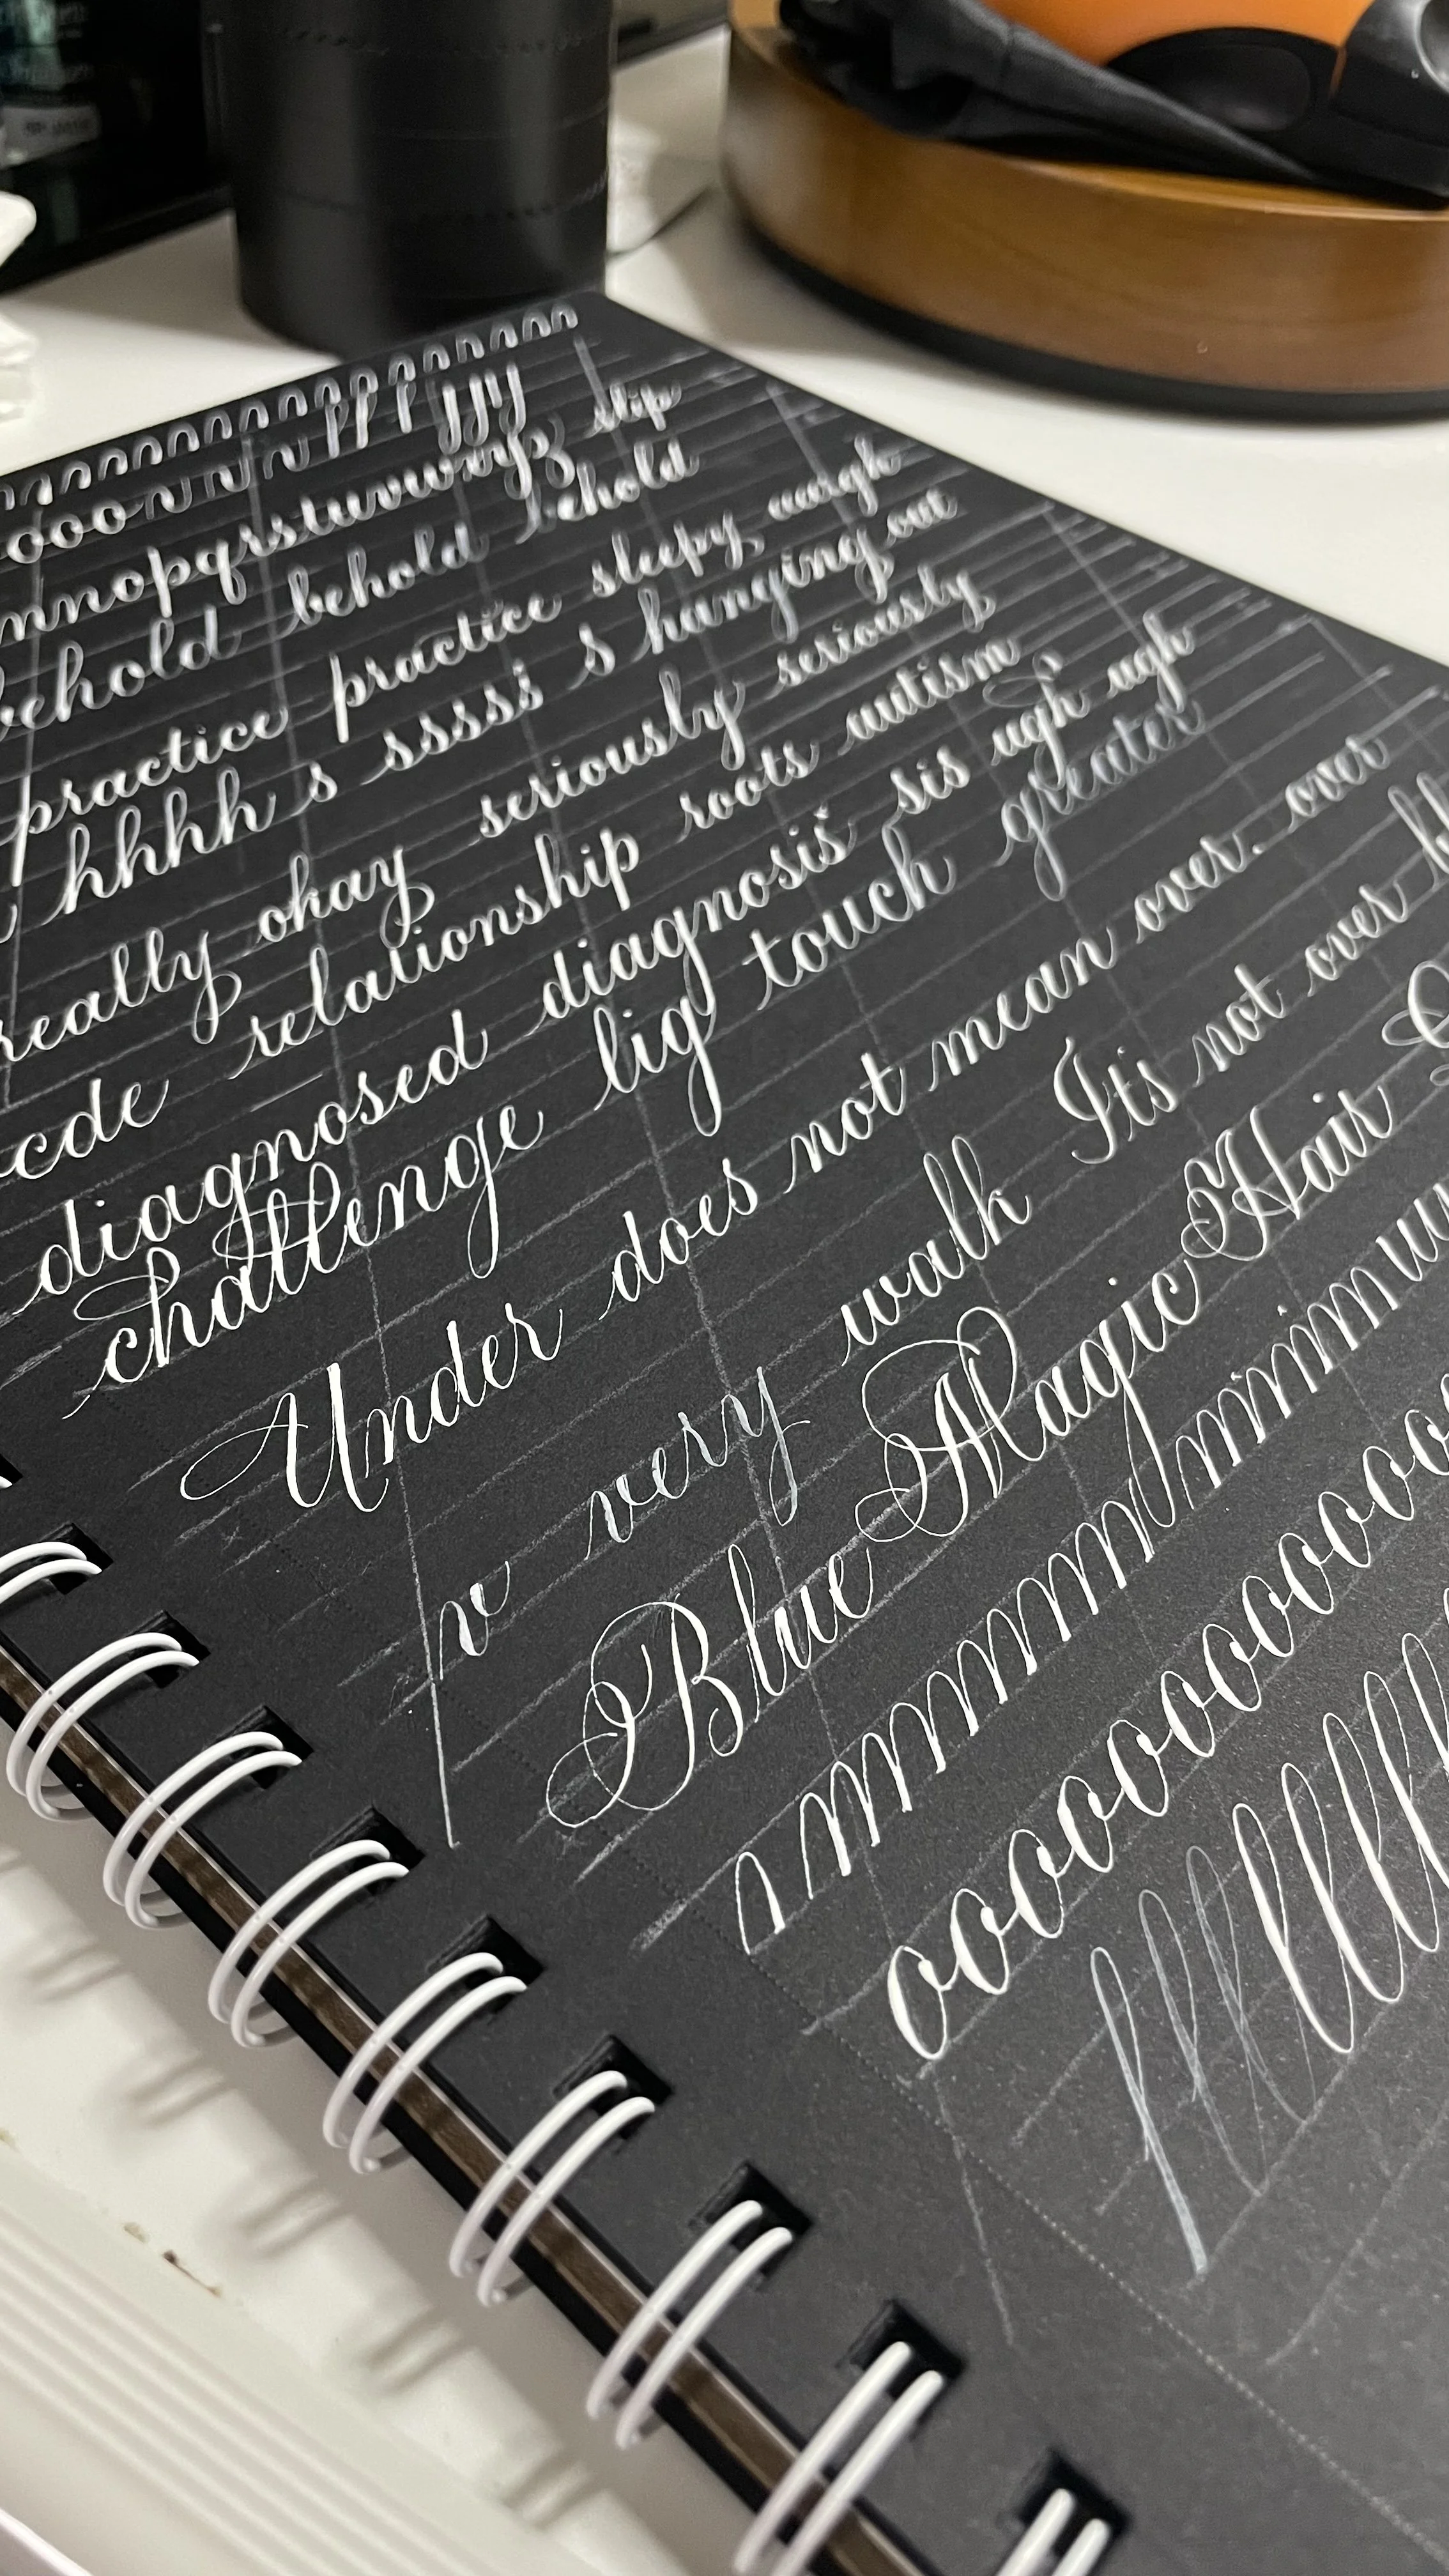 nnnnnnnnnnnnnnnnnn
oooo n n n n ppp jjjj
mnopqrsstuvwxyz slip
behold behold behold
practice practice sleepy weigh
hhhh s sssss s hanging out
really okay seriously seriously
cde relationship roots autism
diagnosed diagnosis sis ugh ugh
challenge lig touch greater
Under does not mean over. over
v very walk Its not over
Blue Magic Hair